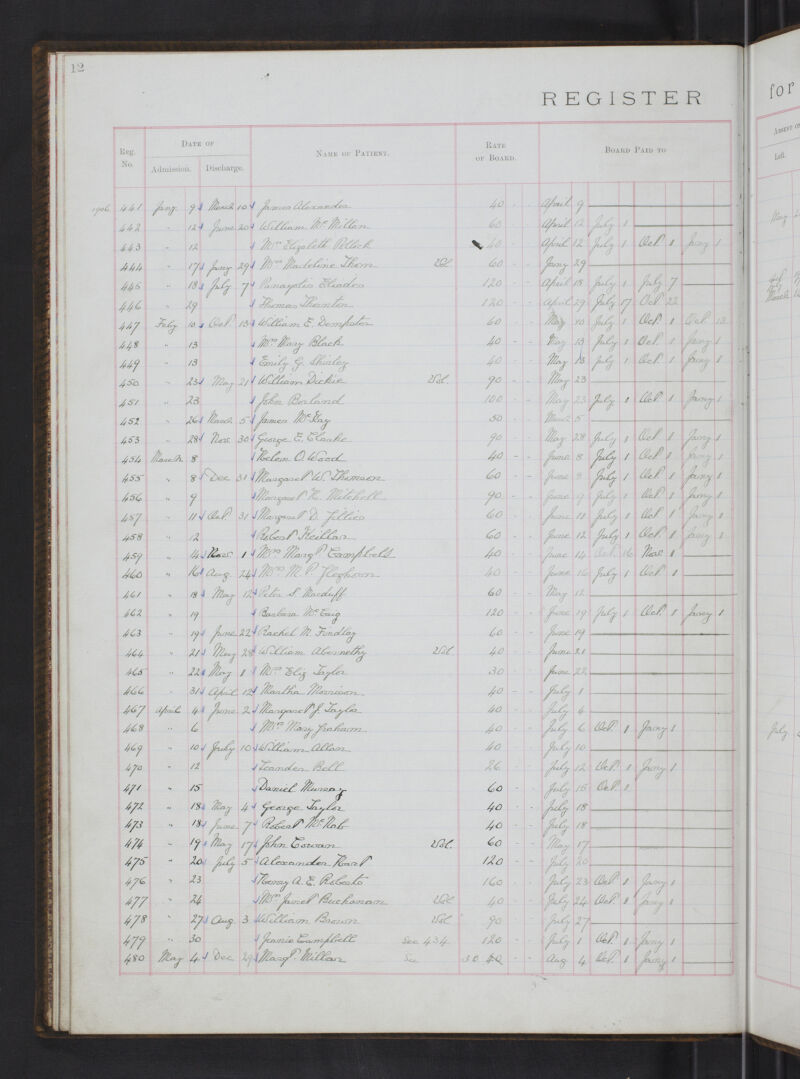 12
REGISTER
for
Reg. No. DATE OF Admission. Discharge. NAME OF PATIENT. RATE OF BOARD. BOARD PAID TO
Left.
1906 441 Jany 9 March 10 James Alexander 40 - - April 9
442 " 12 June 20 William McMillan 60 - - April 12 July 1
443 " 12 Mrs Elizabeth Pollock 40 - - April 12 July 1 Oct 1 Jany 1
444 " 17 Jany 29 Mrs Madeline Thom Vol. 60 - - Jany 29
445 " 18 July 7 Panayotis Eliades 120 - - April 18 July 1 July 7
446 " 29 Thomas Thornton 120 - - April 29 July 17 Oct 22
447 Feby 10 Oct 13 William E. Dempster 60 - - May 10 July 1 Oct 1 Oct 13
448 " 13 Mrs Mary Black 40 - - May 13 July 1 Oct 1 Jany 1
449 " 13 Emily G. Shirley 40 - - May 13 July 1 Oct 1 Jany 1
450 " 23 May 21 William Dickie Vol. 90 - - May 23
451 " 23 John Borland 100 - - May 23 July 1 Oct 1 Jany 1
452 " 26 March 5 James McKay 50 - - March 5
453 " 28 Nov. 30 George E. Clarke 90 - - May 28 July 1 Oct 1 Jany 1
454 March 8 Helen O. Wood 40 - - June 8 July 1 Oct 1 Jany 1
455 " 8 Dec 31 Margaret W. Thomson 60 - - June 8 July 1 Oct 1 Jany 1
456 " 9 Margaret H. Mitchell 90 - - June 9 July 1 Oct 1 Jany 1
457 " 11 Oct 31 Margaret D. Jillies 60 - - June 11 July 1 Oct 1 Jany 1
458 " 12 Robert Keillar 60 - - June 12 July 1 Oct 1 Jany 1
459 " 14 Nov 1 Mrs Margt Campbell 40 - - June 14 Oct 16 Nov 1
460 " 16 Aug 24 Mrs M. P. Gleghorn 40 - - June 16 July 1 Oct 1
461 " 18 May 12 Peter S. Macduff 60 - - May 12
462 " 19 Barbara McCaig 120 - - June 19 July 1 Oct 1 Jany 1
463 " 19 June 22 Rachel M. Findlay 60 - - June 19
464 " 21 May 28 William Abernethy Vol. 40 - - June 21
465 " 22 May 1 Mrs Eliz Taylor 30 - - June 22
466 " 31 April 12 Martha Morrison 40 - - July 1
467 April 4 June 2 Margaret J. Taylor 40 - - July 4
468 " 6 Mrs Mary Graham 40 - - July 6 Oct 1 Jany 1
469 " 10 July 10 William Allan 40 - - July 10
470 " 12 Leander Bell 26 - - July 12 Oct 1 Jany 1
471 " 15 Daniel Murray 60 - - July 15 Oct 1
472 " 18 May 4 George Taylor 40 - - July 18
473 " 18 June 7 Robert McNab 40 - - July 18
474 " 19 May 17 John Cowan Vol. 60 - - May 17
475 " 20 July 5 Alexander Hart 120 - - July 20
476 " 23 Henry A. E. Roberts 160 - - July 23 Oct 1 Jany 1
477 " 24 Mrs Janet Buchanan Vol 40 - - July 24 Oct 1 Jany 1
478 " 27 Aug 3 William Brown Vol 90 - - July 27
479 " 30 Jeanie Campbell See 434 120 - - July 1 Oct 1 Jany 1
480 May 4 Dec 29 Margt Millar See 30 40 - - Aug 4 Oct 1 Jany 1